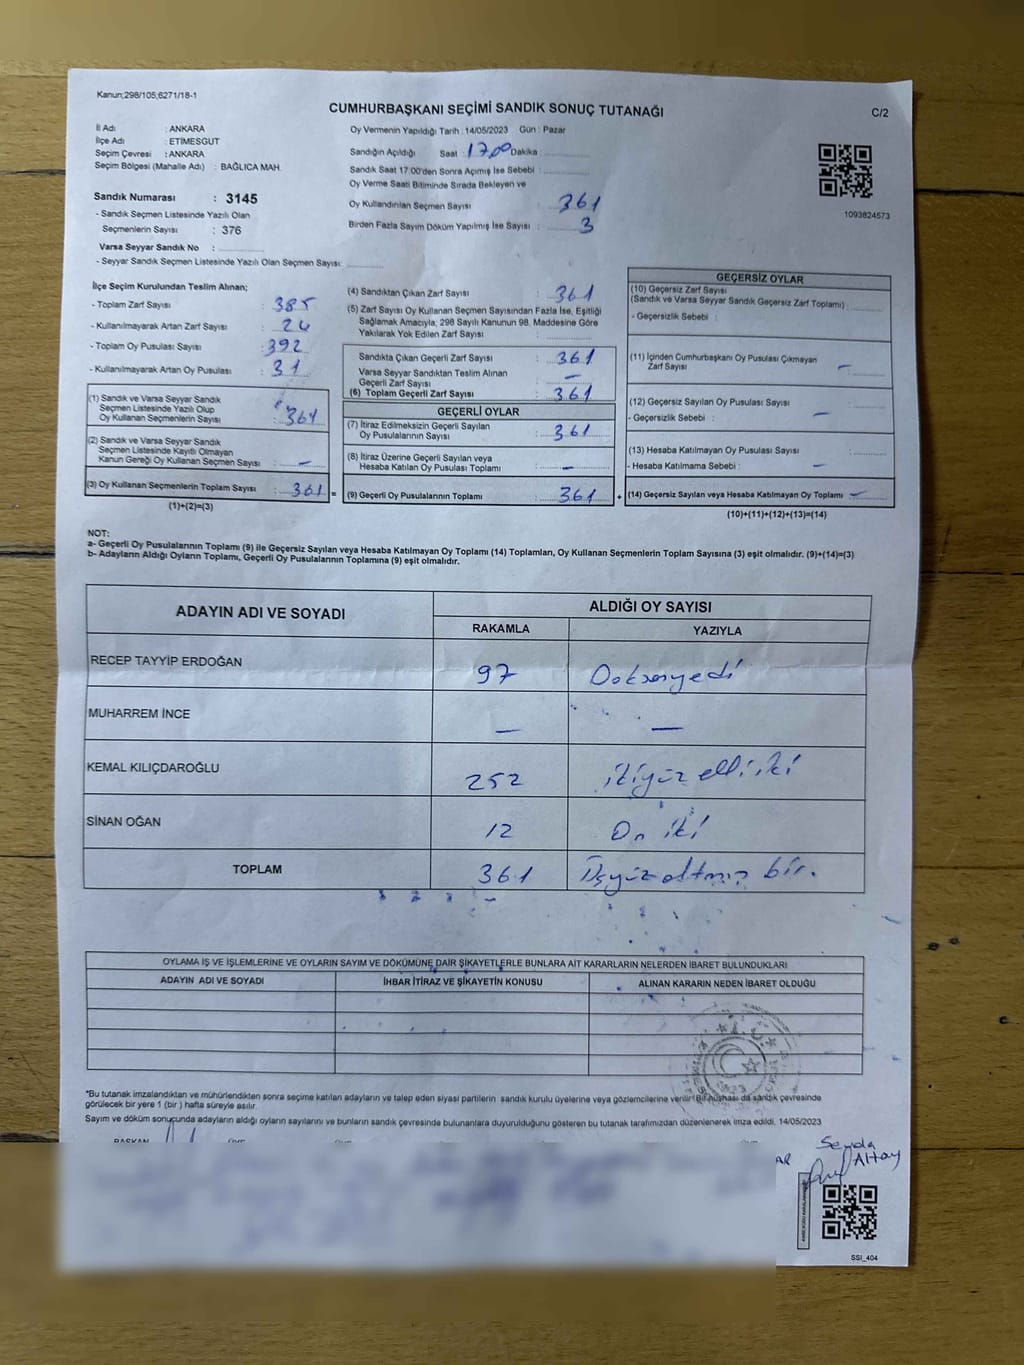 Kanun;298/105;6271/18-1
CUMHURBAŞKANI SEÇİMİ SANDIK SONUÇ TUTANAĞI
C/2
İl Adı : ANKARA
İlçe Adı : ETİMESGUT
Seçim Çevresi : ANKARA
Seçim Bölgesi (Mahalle Adı) : BAĞLICA MAH.
Sandık Numarası : 3145
- Sandık Seçmen Listesinde Yazılı Olan
Seçmenlerin Sayısı : 376
Varsa Seyyar Sandık No :
- Seyyar Sandık Seçmen Listesinde Yazılı Olan Seçmen Sayısı:
Oy Vermenin Yapıldığı Tarih : 14/05/2023 Gün : Pazar
Sandığın Açıldığı Saat 17.00 Dakika :
Sandık Saat 17.00'den Sonra Açımış İse Sebebi :
Oy Verme Saati Bitiminde Sırada Bekleyen ve
Oy Kullandırılan Seçmen Sayısı : 361
Birden Fazla Sayım Döküm Yapılmış İse Sayısı : 3
1093824573
İlçe Seçim Kurulundan Teslim Alınan;
- Toplam Zarf Sayısı : 385
- Kullanılmayarak Artan Zarf Sayısı : 24
- Toplam Oy Pusulası Sayısı : 392
- Kullanılmayarak Artan Oy Pusulası : 31
(1) Sandık ve Varsa Seyyar Sandık
Seçmen Listesinde Yazılı Olup
Oy Kullanan Seçmenlerin Sayısı : 361
(2) Sandık ve Varsa Seyyar Sandık
Seçmen Listesinde Kayıtlı Olmayan
Kanun Gereği Oy Kullanan Seçmen Sayısı : –
(3) Oy Kullanan Seçmenlerin Toplam Sayısı : 361 =
(1)+(2)=(3)
(4) Sandıktan Çıkan Zarf Sayısı : 361
(5) Zarf Sayısı Oy Kullanan Seçmen Sayısından Fazla İse, Eşitliği
Sağlamak Amacıyla, 298 Sayılı Kanunun 98. Maddesine Göre
Yakılarak Yok Edilen Zarf Sayısı :
Sandıkta Çıkan Geçerli Zarf Sayısı : 361
Varsa Seyyar Sandıktan Teslim Alınan
Geçerli Zarf Sayısı : –
(6) Toplam Geçerli Zarf Sayısı : 361
GEÇERLİ OYLAR
(7) İtiraz Edilmeksizin Geçerli Sayılan
Oy Pusulalarının Sayısı : 361
(8) İtiraz Üzerine Geçerli Sayılan veya
Hesaba Katılan Oy Pusulası Toplamı : –
(9) Geçerli Oy Pusulalarının Toplamı : 361 +
GEÇERSİZ OYLAR
(10) Geçersiz Zarf Sayısı
(Sandık ve Varsa Seyyar Sandık Geçersiz Zarf Toplamı)
- Geçersizlik Sebebi :
(11) İçinden Cumhurbaşkanı Oy Pusulası Çıkmayan
Zarf Sayısı : –
(12) Geçersiz Sayılan Oy Pusulası Sayısı :
- Geçersizlik Sebebi : –
(13) Hesaba Katılmayan Oy Pusulası Sayısı :
- Hesaba Katılmama Sebebi : –
(14) Geçersiz Sayılan veya Hesaba Katılmayan Oy Toplamı –
(10)+(11)+(12)+(13)=(14)
NOT:
a- Geçerli Oy Pusulalarının Toplamı (9) ile Geçersiz Sayılan veya Hesaba Katılmayan Oy Toplamı (14) Toplamları, Oy Kullanan Seçmenlerin Toplam Sayısına (3) eşit olmalıdır. (9)+(14)=(3)
b- Adayların Aldığı Oyların Toplamı, Geçerli Oy Pusulalarının Toplamına (9) eşit olmalıdır.
ADAYIN ADI VE SOYADI ALDIĞI OY SAYISI
RAKAMLA YAZIYLA
RECEP TAYYİP ERDOĞAN 97 Doksanyedi
MUHARREM İNCE – –
KEMAL KILIÇDAROĞLU 252 ikiyüz elli iki
SİNAN OĞAN 12 On iki
TOPLAM 361 Üçyüz altmış bir.
OYLAMA İŞ VE İŞLEMLERİNE VE OYLARIN SAYIM VE DÖKÜMÜNE DAİR ŞİKAYETLERLE BUNLARA AİT KARARLARIN NELERDEN İBARET BULUNDUKLARI
ADAYIN ADI VE SOYADI İHBAR İTİRAZ VE ŞİKAYETİN KONUSU ALINAN KARARIN NEDEN İBARET OLDUĞU
*Bu tutanak imzalandıktan ve mühürlendikten sonra seçime katılan adayların ve talep eden siyasi partilerin sandık kurulu üyelerine veya gözlemcilerine verilir. Bir nüshası da sandık çevresinde
görülecek bir yere 1 (bir) hafta süreyle asılır.
Sayım ve döküm sonucunda adayların aldığı oyların sayılarını ve bunların sandık çevresinde bulunanlara duyurulduğunu gösteren bu tutanak tarafımızdan düzenlenerek imza edildi. 14/05/2023
BAŞKAN
Sevda
Altay
SSI_404